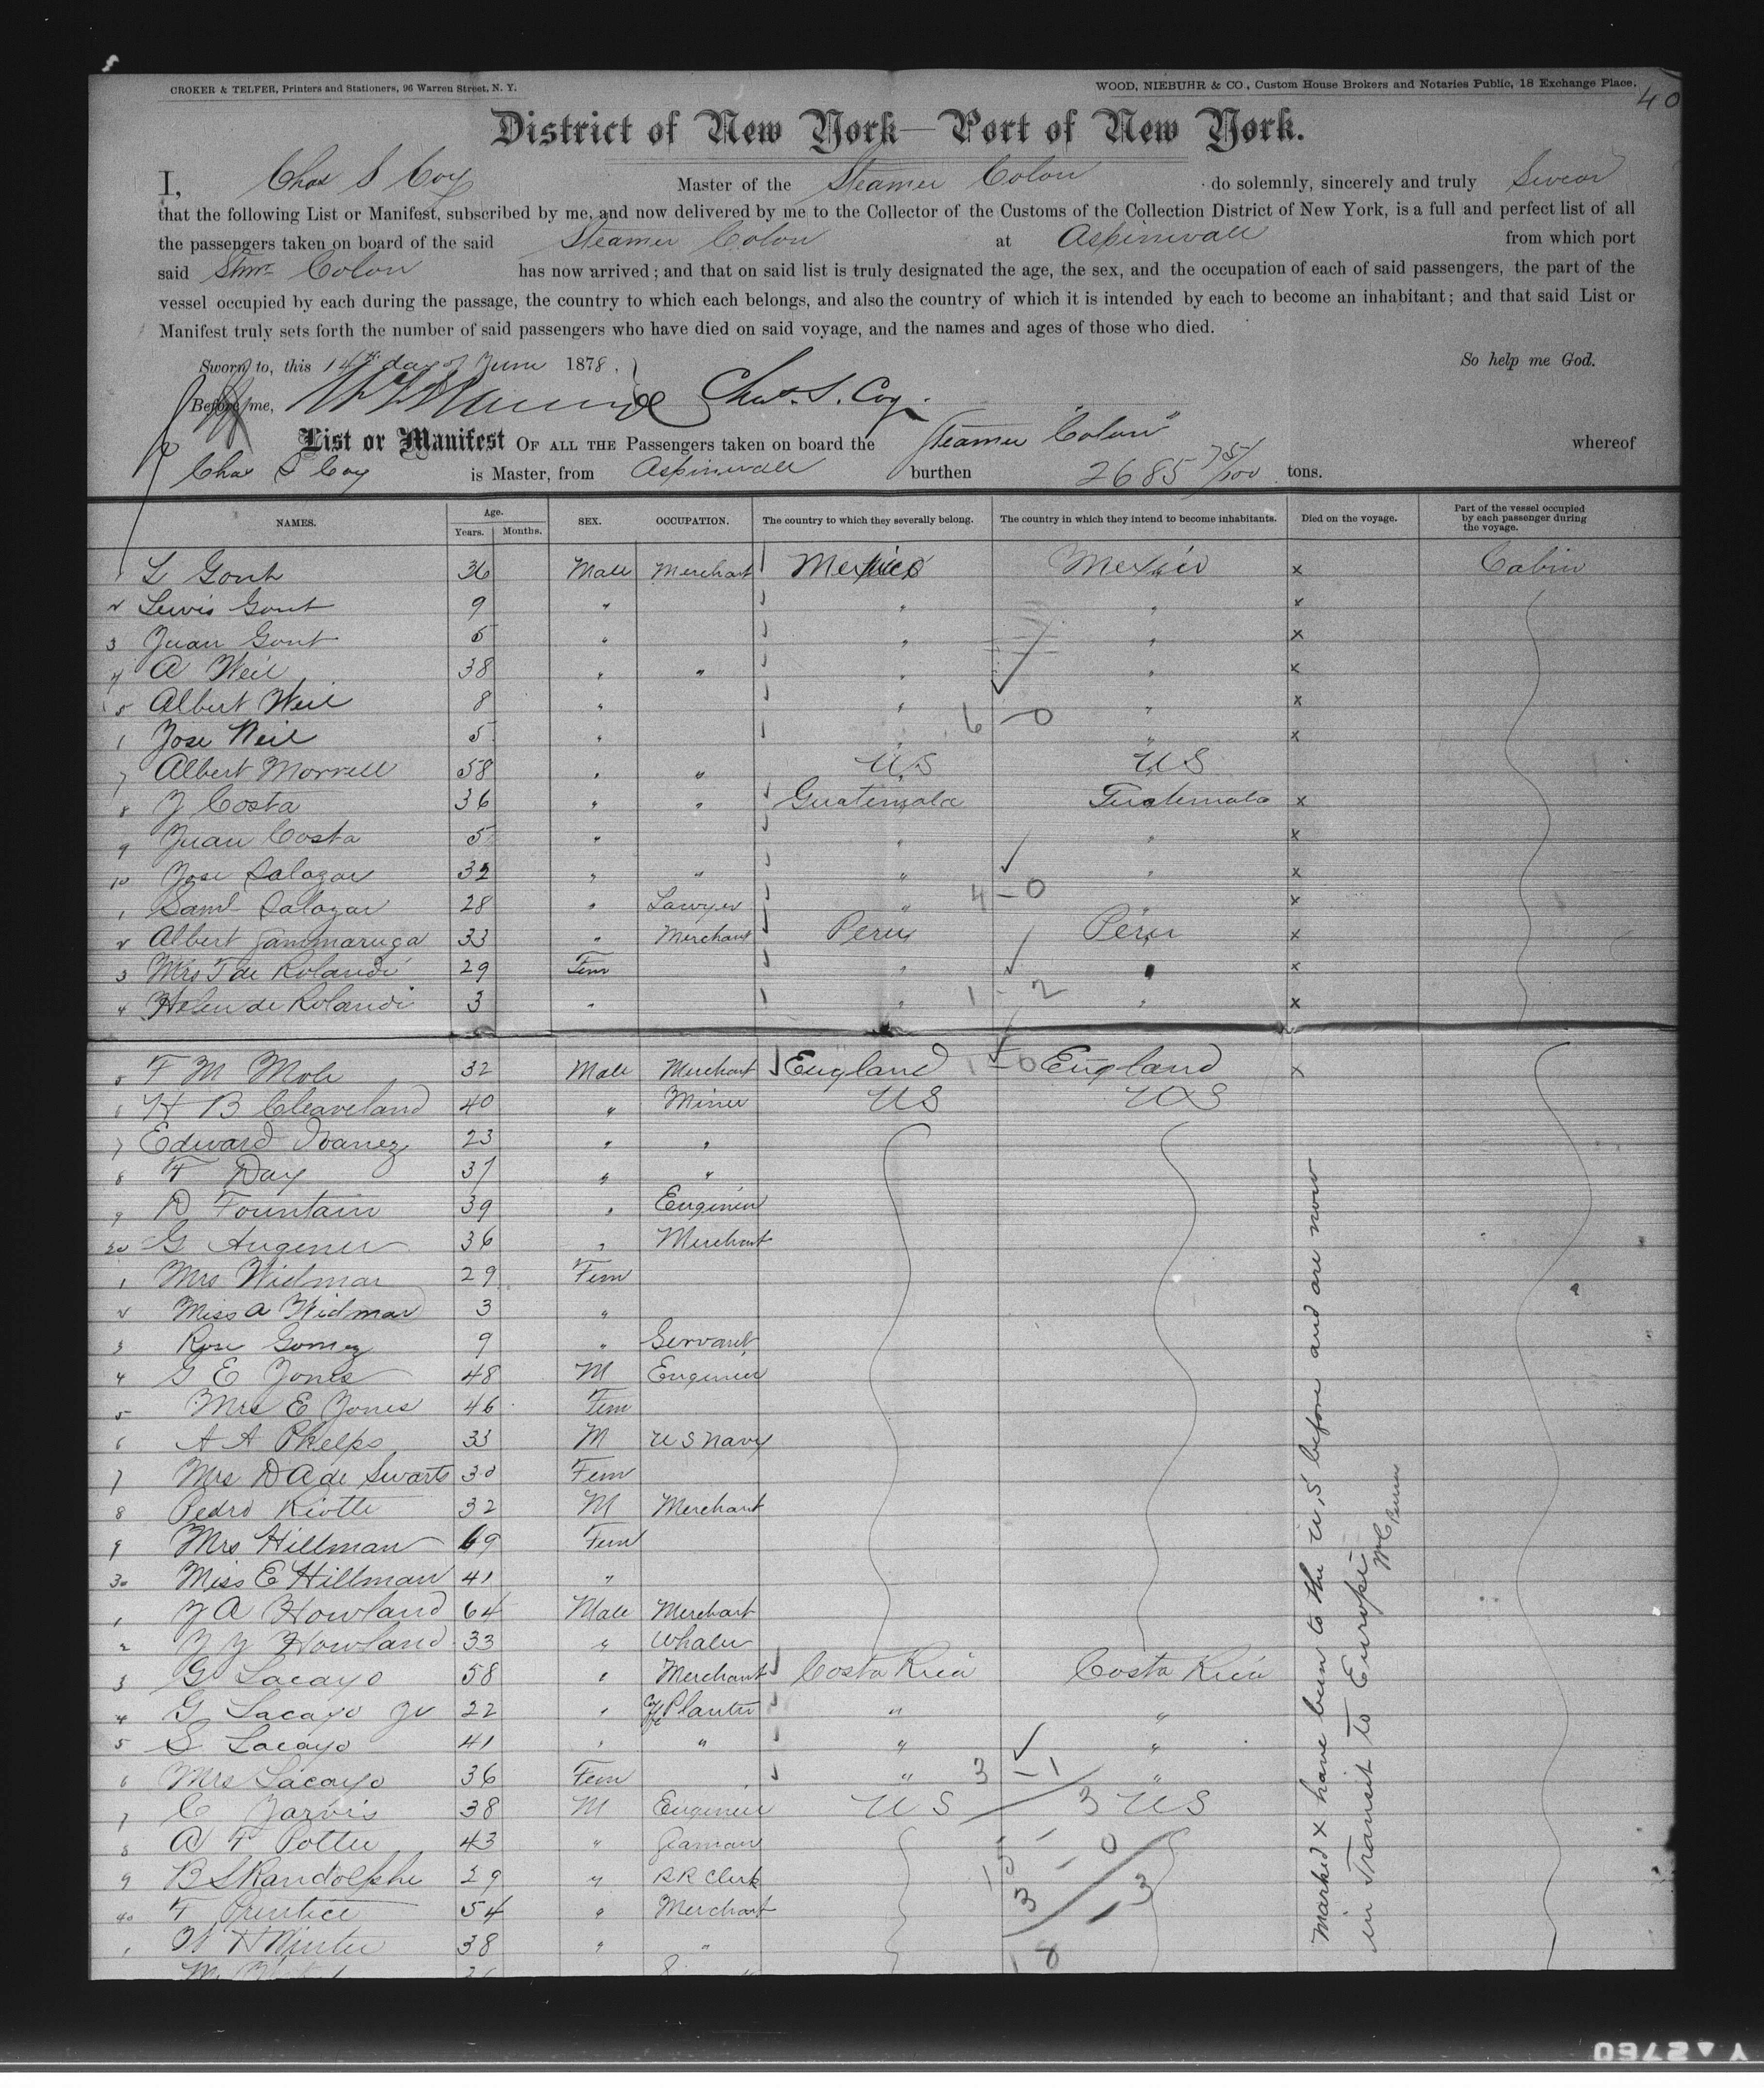 CROKER & TELFER, Printers and Stationers, 96 Warren Street, N. Y.
WOOD, NIEBUHR & CO., Custom House Brokers and Notaries Public, 18 Exchange Place.
40
District of New York—Port of New York.
I, Chas S Coy Master of the Steamer Colon do solemnly, sincerely and truly Swear
that the following List or Manifest, subscribed by me, and now delivered by me to the Collector of the Customs of the Collection District of New York, is a full and perfect list of all
the passengers taken on board of the said Steamer Colon at Aspinwall from which port
said Stmr Colon has now arrived; and that on said list is truly designated the age, the sex, and the occupation of each of said passengers, the part of the
vessel occupied by each during the passage, the country to which each belongs, and also the country of which it is intended by each to become an inhabitant; and that said List or
Manifest truly sets forth the number of said passengers who have died on said voyage, and the names and ages of those who died.
Sworn to, this 14th day of June 1878. So help me God.
Before me, Chas. S. Coy
List or Manifest OF ALL THE Passengers taken on board the Steamer "Colon" whereof
Chas S Coy is Master, from Aspinwall burthen 2685 75/100 tons.
NAMES. Age. Years. Months. SEX. OCCUPATION. The country to which they severally belong. The country in which they intend to become inhabitants. Died on the voyage. Part of the vessel occupied by each passenger during the voyage.
1 L Gont 36 Male Merchant Mexico Mexico x Cabin
2 Lewis Gont 9 " " " x
3 Juan Gont 5 " " " x
4 A Weil 38 " " " " x
5 Albert Weil 8 " " " x
6 - 0
1 Jose Weil 5 " " " x
7 Albert Morrell 58 " " US US
8 J Costa 36 " " Guatemala Guatemala x
9 Juan Costa 5 " " " x
10 Jose Salazar 32 " " " " x
4 - 0
1 Saml Salazar 28 " Lawyer " " x
2 Albert Gammaruga 33 " Merchant Peru Peru x
3 Mrs T de Rolandi 29 Fem " " x
4 Helen de Rolandi 3 " " 1 - 2 " x
5 F M Mole 32 Male Merchant England 1 - 0 England x
6 H B Cleaveland 40 " Miner US US
7 Edward Ibanez 23 " "
8 F Day 37 " "
9 D Fountain 39 " Engineer
20 G Augener 36 " Merchant
1 Mrs Widmar 29 Fem
2 Miss A Widmar 3 "
3 Rose Gomez 9 " Servant
4 G E Jones 48 M Engineer
5 Mrs E Jones 46 Fem
6 A A Phelps 33 M U S Navy
7 Mrs D A de Swarts 30 Fem
8 Pedro Kiotte 32 M Merchant
9 Mrs Hillman 69 Fem
30 Miss E Hillman 41 "
1 J A Howland 64 Male Merchant
2 J J Howland 33 " Whaler
3 G Lacayo 58 " Merchant Costa Rica Costa Rica
4 G Lacayo Jr 22 " Coffe Planter " "
5 S Lacayo 41 " " " "
6 Mrs Lacayo 36 Fem " 3 - 1 "
7 C Jarvis 38 M Engineer US 3 US
8 A F Potter 43 " Seaman
15 - 0
9 B S Randolphe 29 " R R Clerk
3 3
40 F Prentice 54 " Merchant
1 W H Minter 38 " "
18
Marked x have been to the U,S before and are now
in Transit to Europe
Y 2760